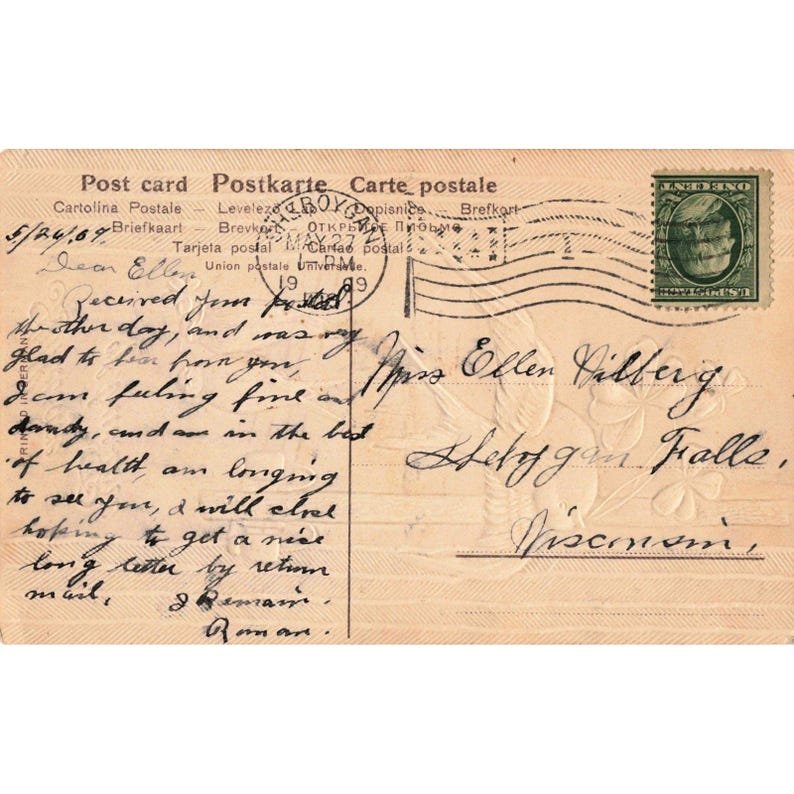 Post card Postkarte Carte postale
Cartolina Postale – Levelező Lap – Dopisnice – Brefkort
Briefkaart – Brevkort – ОТКРЫТОЕ ПИСЬМО
Tarjeta postal – Cartao postal
Union postale Universelle.
SHEBOYGAN
MAY 27
1 – PM
19 09
WIS.
ONE CENT
U.S. POSTAGE
PRINTED IN GERMANY
5/26/09.
Dear Ellen
Received your postal
the other day, and was very
glad to hear from you,
I am feeling fine and
dandy, and am in the best
of health, am longing
to see you, I will close
hoping to get a nice
long letter by return
mail, I Remain.
Roman.
Miss Ellen Vilberg
Sheboygan Falls,
Wisconsin,